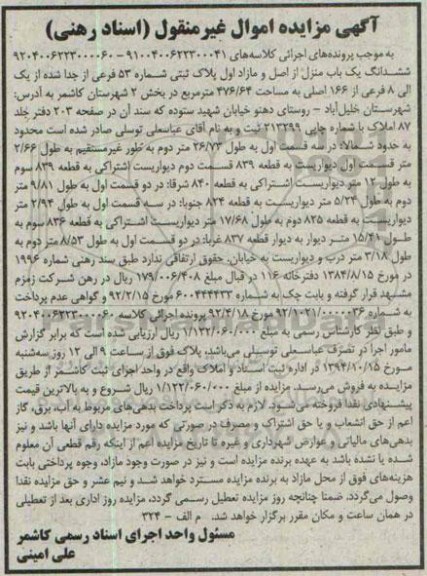 آگهی مزایده اموال غیرمنقول (اسناد رهنی)
به موجب پرونده‌های اجرائی کلاسه‌های ۹۱۰۰۴۰۰۶۲۲۳۰۰۰۴۱ – ۹۲۰۴۰۰۶۲۲۳۰۰۰۰۶۰
ششدانگ یک باب منزل از اصل و مازاد اول پلاک ثبتی شماره ۵۳ فرعی از جدا شده از یک
الی ۸ فرعی از ۱۶۶ اصلی به مساحت ۴۷۶/۶۴ مترمربع در بخش ۲ شهرستان کاشمر به آدرس:
شهرستان خلیل‌آباد – روستای دهنو خیابان شهید ستوده که سند آن در صفحه ۲۰۳ دفتر جلد
۸۷ املاک با شماره چاپی ۲۱۳۲۹۹ ثبت و به نام آقای عباسعلی توسلی صادر شده است محدود
به حدود شمالا: در سه قسمت اول به طول ۲۶/۷۳ متر دوم به طور غیرمستقیم به طول ۲/۶۶
متر قسمت اول دیواریست به قطعه ۸۳۹ قسمت دوم دیواریست اشتراکی به قطعه ۸۳۹ سوم
به طول ۱۲ متر دیواریست اشتراکی به قطعه ۸۴۰ شرقا: در دو قسمت اول به طول ۹/۸۱ متر
دوم به طول ۵/۲۴ متر دیواریست به قطعه ۸۲۴ جنوبا: در سه قسمت اول به طول ۲/۹۴ متر
دیواریست به قطعه ۸۲۵ دوم به طول ۱۷/۶۸ متر دیواریست اشتراکی به قطعه ۸۳۶ سوم به
طول ۱۵/۴۱ متر دیوار به دیوار قطعه ۸۳۷ غربا: در دو قسمت اول به طول ۸/۵۳ متر دوم به
طول ۳/۱۸ متر درب و دیواریست به خیابان. حقوق ارتفاقی ندارد طبق سند رهنی شماره ۱۹۹۶
در مورخ ۱۳۸۴/۸/۱۵ دفترخانه ۱۱۶ در قبال مبلغ ۱۷۹/۰۰۶/۴۰۸ ریال در رهن شرکت زمزم
مشهد قرار گرفته و بابت چک به شماره ۶۰۰۴۴۴۴۳۳ مورخ ۹۲/۲/۱۵ و گواهی عدم پرداخت
به شماره ۹۲/۱۰۲۱/۰۰۰۰۰۳۶ مورخ ۹۲/۴/۱۸ پرونده اجرائی کلاسه ۹۲۰۴۰۰۶۲۲۳۰۰۰۰۶۰
و طبق نظر کارشناس رسمی به مبلغ ۱/۱۳۲/۰۶۰/۰۰۰ ریال ارزیابی شده است که برابر گزارش
مامور اجرا در تصرف عباسعلی توسلی می‌باشد، پلاک فوق از ساعت ۹ الی ۱۲ روز سه‌شنبه
مورخ ۱۳۹۴/۱۰/۱۵ در اداره ثبت اسناد و املاک واقع در واحد اجرای ثبت کاشمر از طریق
مزایده به فروش می‌رسد. مزایده از مبلغ ۱/۱۲۲/۰۶۰/۰۰۰ ریال شروع و به بالاترین قیمت
پیشنهادی نقدا فروخته می‌شود. لازم به ذکر است پرداخت بدهی‌های مربوط به آب، برق، گاز
اعم از حق انشعاب و یا حق اشتراک و مصرف در صورتی که مورد مزایده دارای آنها باشد و نیز
بدهی‌های مالیاتی و عوارض شهرداری و غیره تا تاریخ مزایده اعم از اینکه رقم قطعی آن معلوم
شده یا نشده باشد به عهده برنده مزایده است و نیز در صورت وجود مازاد، وجوه پرداختی بابت
هزینه‌های فوق از محل مازاد به برنده مزایده مسترد خواهد شد و نیم عشر و حق مزایده نقدا
وصول می‌گردد، ضمنا چنانچه روز مزایده تعطیل رسمی گردد، مزایده روز اداری بعد از تعطیلی
در همان ساعت و مکان مقرر برگزار خواهد شد. م الف – ۳۲۴
مسئول واحد اجرای اسناد رسمی کاشمر
علی امینی